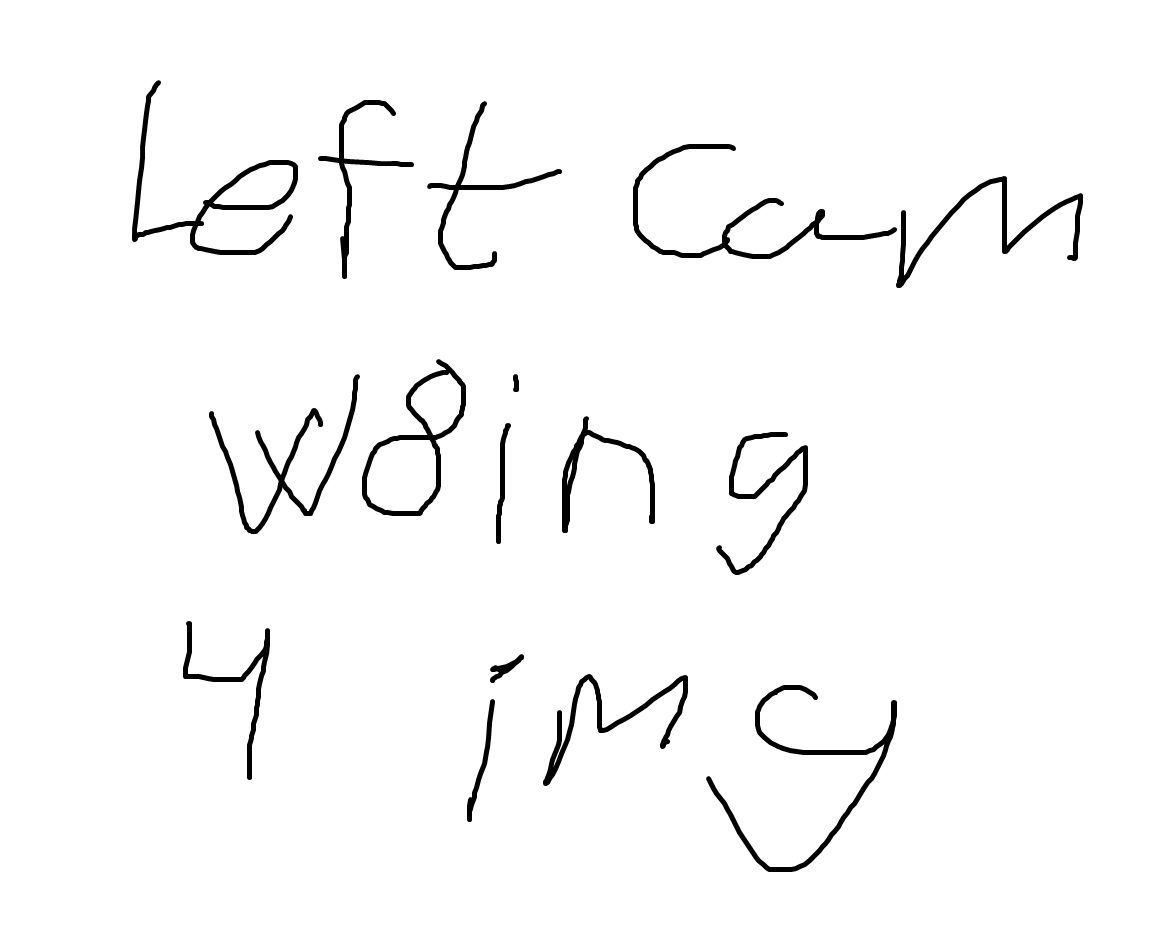 Left Cam
w8ing
4 img